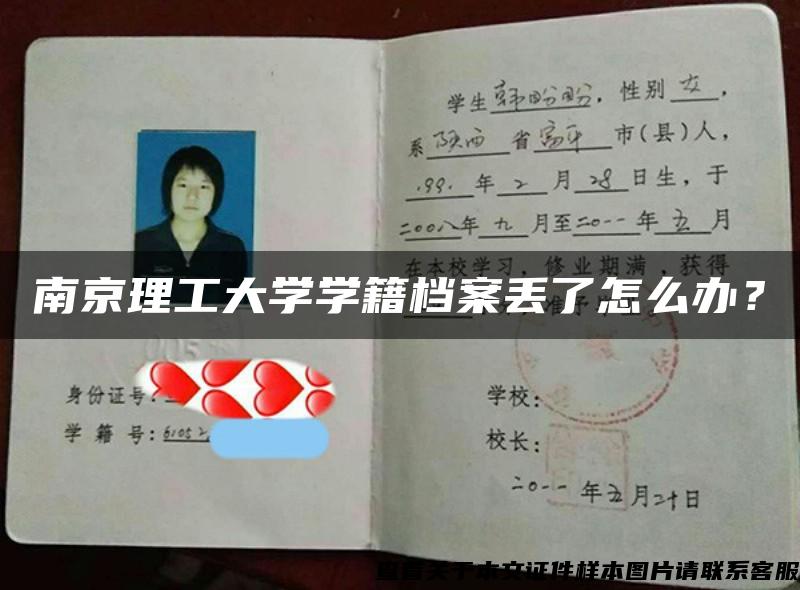 学生韩盼盼，性别女，
系陕西省富平市(县)人，
1991年2月28日生，于
二00八年九月至二0一一年五月
在本校学习，修业期满，获得
南京理工大学学籍档案丢了怎么办？
身份证号：
学籍号：61052
学校：
校长：
二0一一年五月二十日
查看关于本文证件样本图片请联系客服